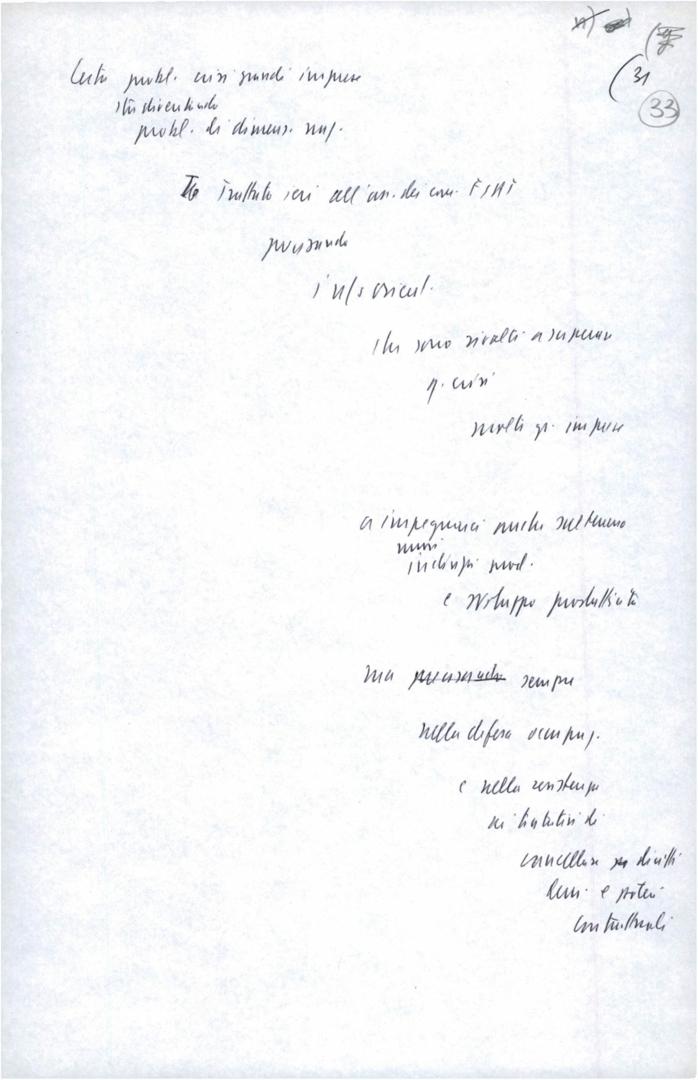 (31
33
Certo probl. crisi grandi imprese
sta diventando
probl. di dimens. naz.
Trattato ieri all'ass. dei com. FIAT
precisando
i ns orient.
che sono rivolti a superare
q. crisi
molte gr. imprese
a impegnarci anche sul terreno
nuovi
indirizzi prod.
e sviluppo produttività
ma precisando sempre
nella difesa occupaz.
e nella resistenza
ai tentativi di
cancellare diritti
lavor. e poteri
contrattuali